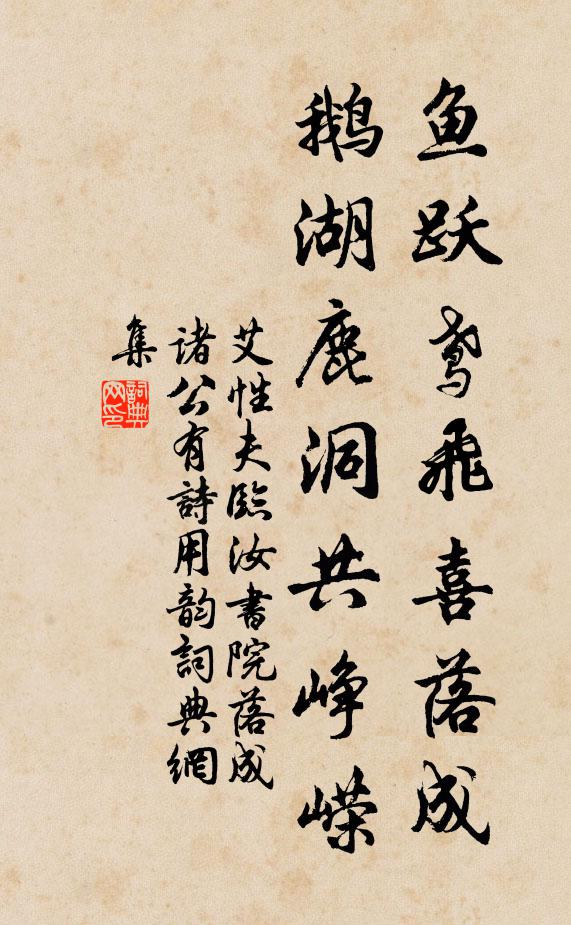 鱼跃鸢飞喜落成
鹅湖鹿洞共峥嵘
艾性夫臨汝書院落成
诸公有詩用韵詞典網
集
詞典網印